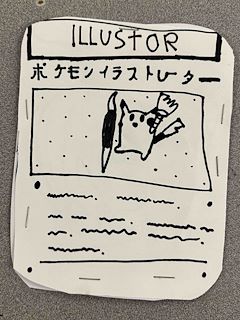 ILLUSTOR
ポケモンイラストレーター